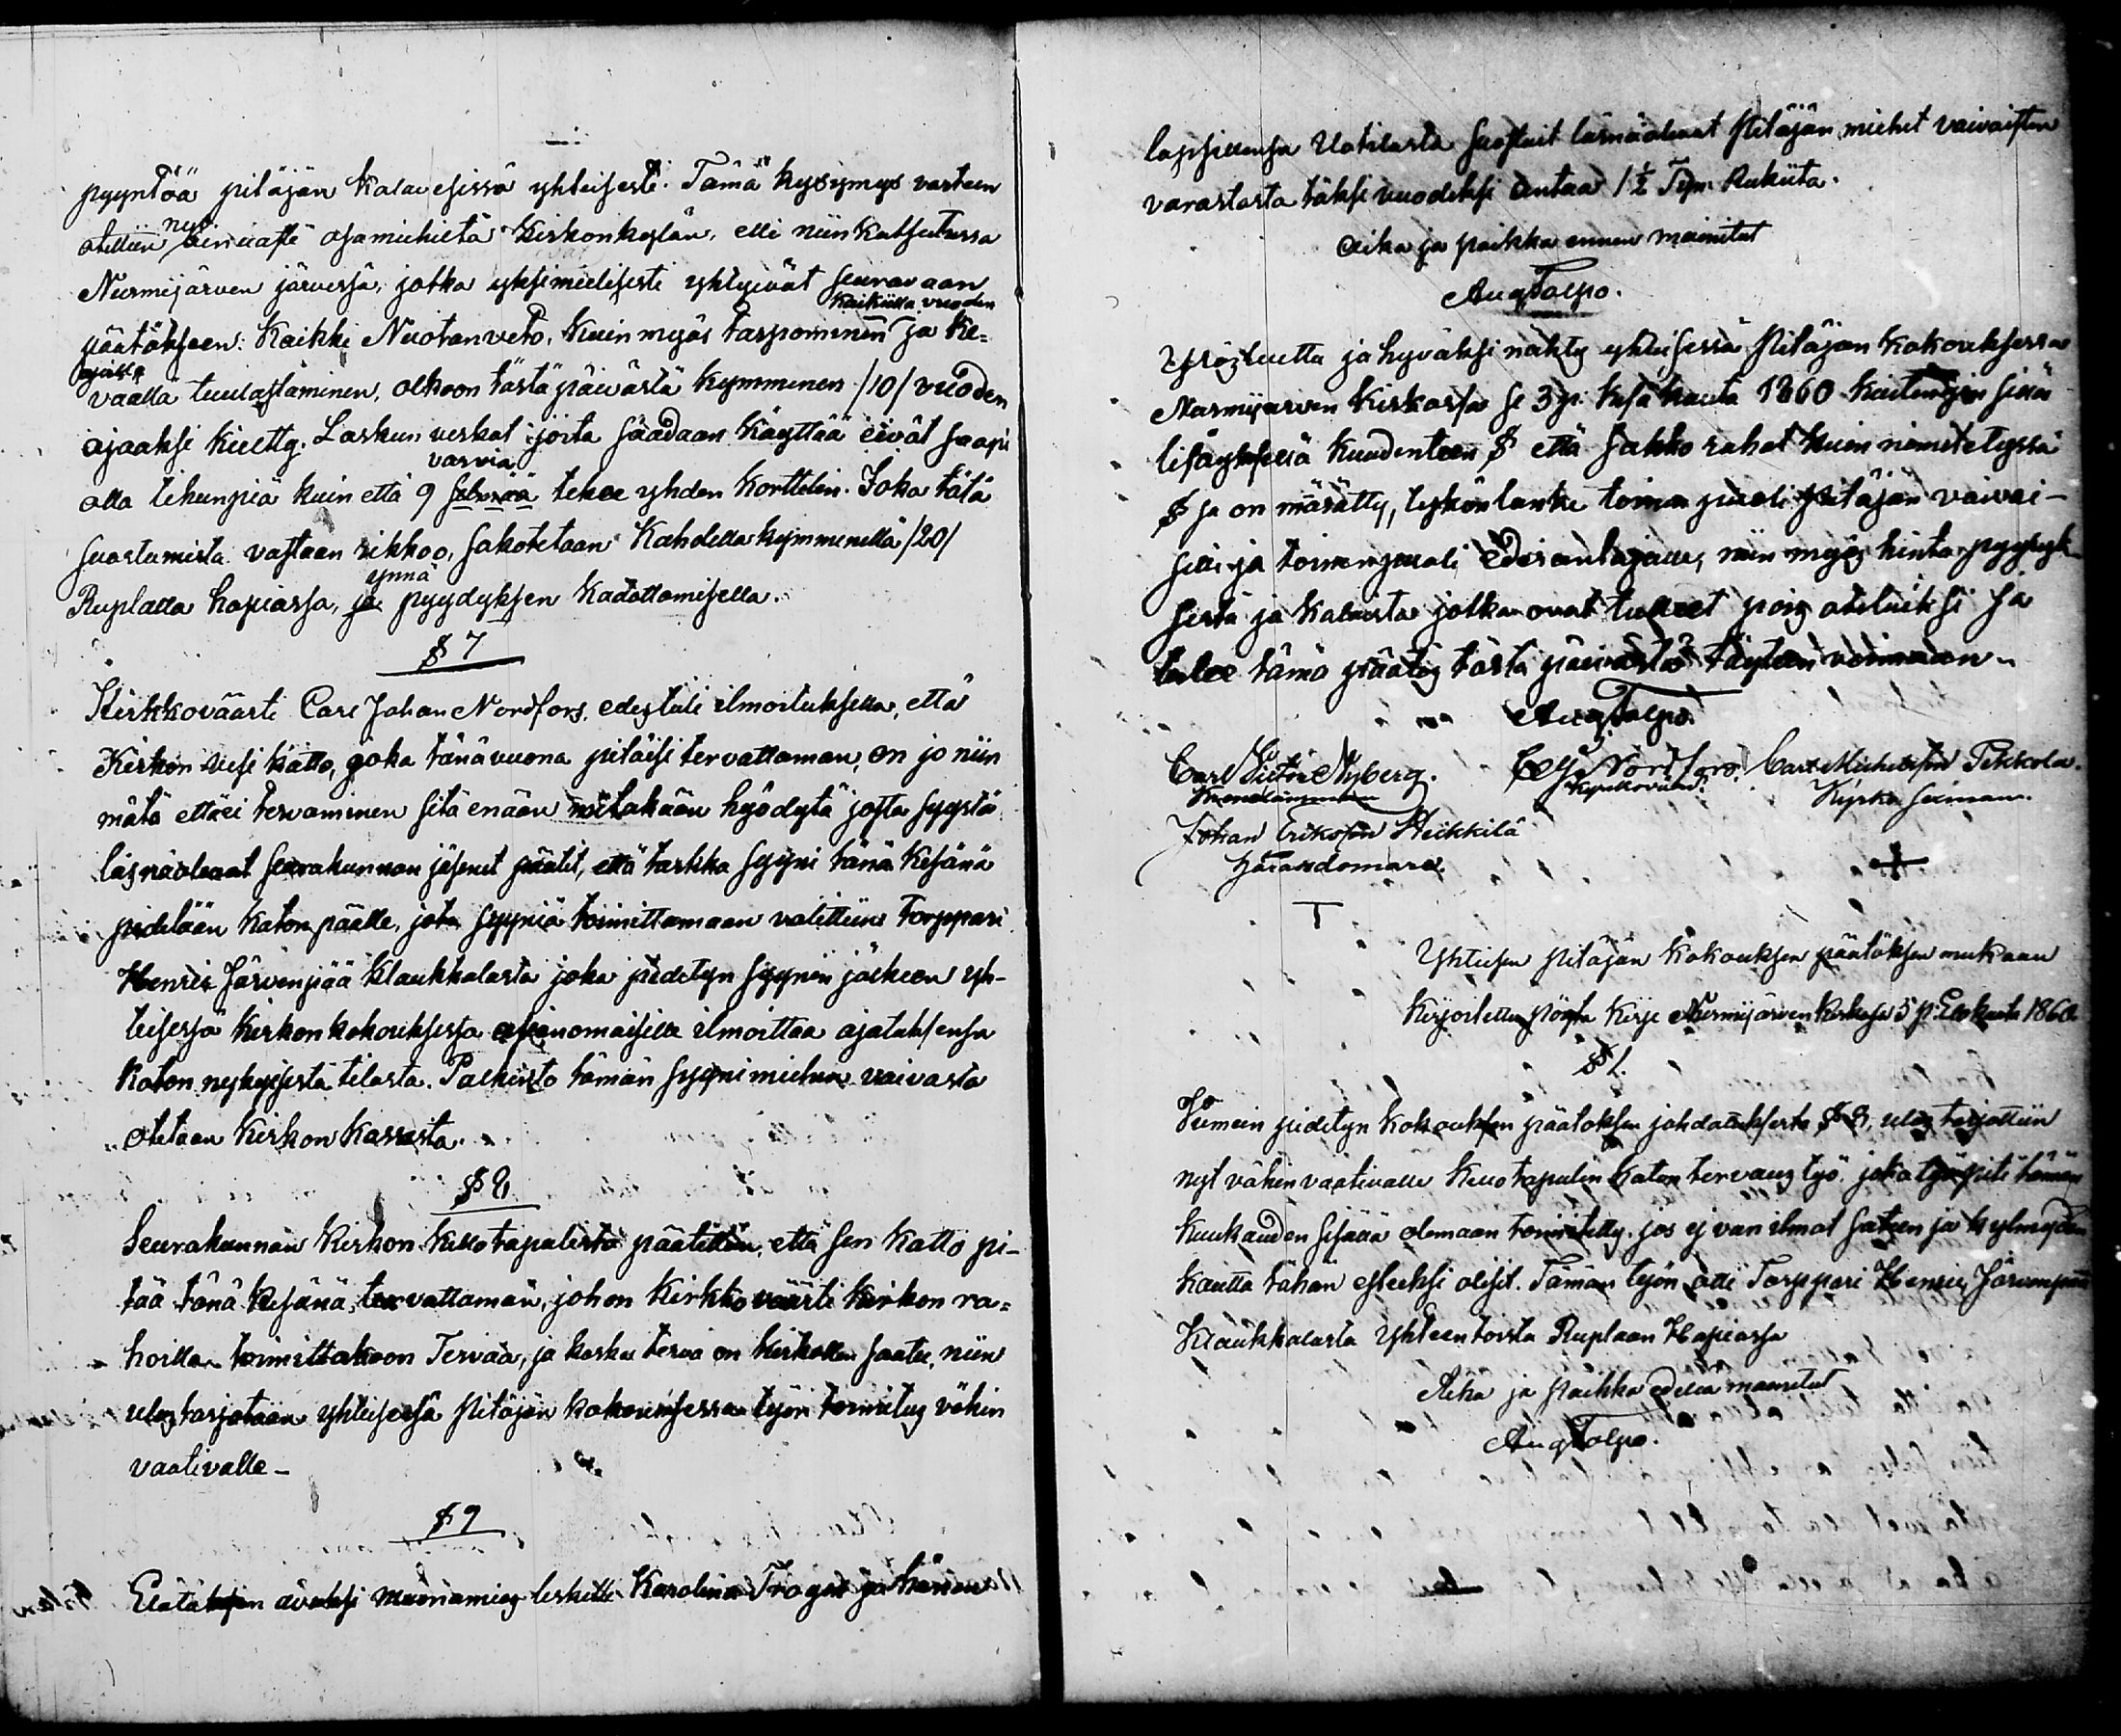 pyyntöä pitäjän kalavesissä yhteisesti. Tämä kysymys varteen
otettiin nyt ainuasti osamiehiltä Kirkonkylän, elli niin kutsutussa
Nurmijärven järvessä, jotka yksimielisesti yhtyivät seuravaan
päätökseen: Kaikki Nuotanveto, kuin myös tarpominen kaikilla vuoden ja ke-
ajoilla
väällä tuulastaminen, olkoon tästä päivästä kymmenen /10/ vuoden
ajaaksi kieltty. Laskun verkot joita saadaan käyttää eivät saapi
olla tihunpiä kuin että 9 solmua varvia tekee yhden korttelin. Joka tätä
suostumista vastaan rikkoo, sakotetaan Kahdella kymmenellä /20/
Ruplalla hopiassa, ja ynnä pyydyksen kadottamisella.
§ 7
Kirkkoväärti Carl Johan Nordfors, edestuli ilmoituksella, että
Kirkon uusi katto, joka tänävuona pitäisi tervattaman, on jo niin
mätä ettäei tervaminen sitä enään mitakään hyödytä josta syystä
läsnäolevat seurakunnan jäsenet päätit, että tarkka syyni tänä kesänä
pidetään katon päälle, jota syyniä toimittamaan valittiin Torppari
Henric Järvenpää Klaukkalasta joka pidetyn syynin jälkeen yh-
teisessä kirkonkokouksessa asianomaisille ilmoittaa ajatuksensa
Katon nykyisestä tilasta. Palkinto tämän syynimiehen vaivasta
otetaan Kirkon Kassasta.
§ 8
Seurakunnan Kirkon Kellotapulista päätettiin, että sen Katto pi-
tää tänä kesänä tervattaman, johon Kirkkoväärti Kirkon ra-
hoilla toimittakoon Tervaa, ja koska terva on kirkollen saatu, niin
ulostarjotaan yhteisessä Pitäjän kokouksessa työn toimitus vähin
vaativalle –
§ 9
Elatuksen avuksi muonamies leskelle Karolina Trogst ja hänen
lapsillensa Uotilasta suostuit läsnäolevat Pitäjän miehet vaivaisten
varastosta täksi vuodeksi antaa 1½ Tyn. Rukiita.
Aika ja paikka ennen mainitut
Aug Tolpo.
Ylösluettu ja hyväksi nähty yhteisessä Pitäjän kokouksessa
Nurmijärven Kirkossa se 3 p: kesä kuuta 1860 kuitengin sillä
lisäyksellä kuudenteen § että sakko rahat kuin nimitetyssä
§ sa on määrätty, lyköönlanke toinen puoli Pitäjän vaivai-
sille ja toinen puoli edesantajalle, niin myös hinta pyydyk-
sistä ja kaloista jotka ovat tulleet pois otetuiksi ja
tulee tämä päätös tästä päivästä täyteen voimaan.
Aug Tolpo.
Carl Victor Nyberg. C J Nordfors. Carl Michelsson Pekkola.
Kronolänsman Kyrkovärd. Kyrko sexman.
Johan Eriksson Heikkilä
Häradsdomare.
Yhteisen Pitäjän kokouksen päätöksen mukaan
kirjoitettu pöytä kirje Nurmijärven kirkossa 5 p: Elokuuta 1860.
§ 1.
Viimein pidetyn kokouksen päätöksen johdatuksesta § 8, ulos tarjottiin
nyt vähin vaativalle kellotapulin katon tervaus työ, joka työ piti tämän
kuukauden sisällä olemaan toimitetty, jos ej van ilmat sateen ja kylmyden
kautta tähän esteeksi olisit. Tämän työn otti Torppari Henric Järvenpää
Klaukkalasta Yhteentoista Ruplaan Hopiassa
Aika ja paikka edellä mainitut
Aug Tolpo.